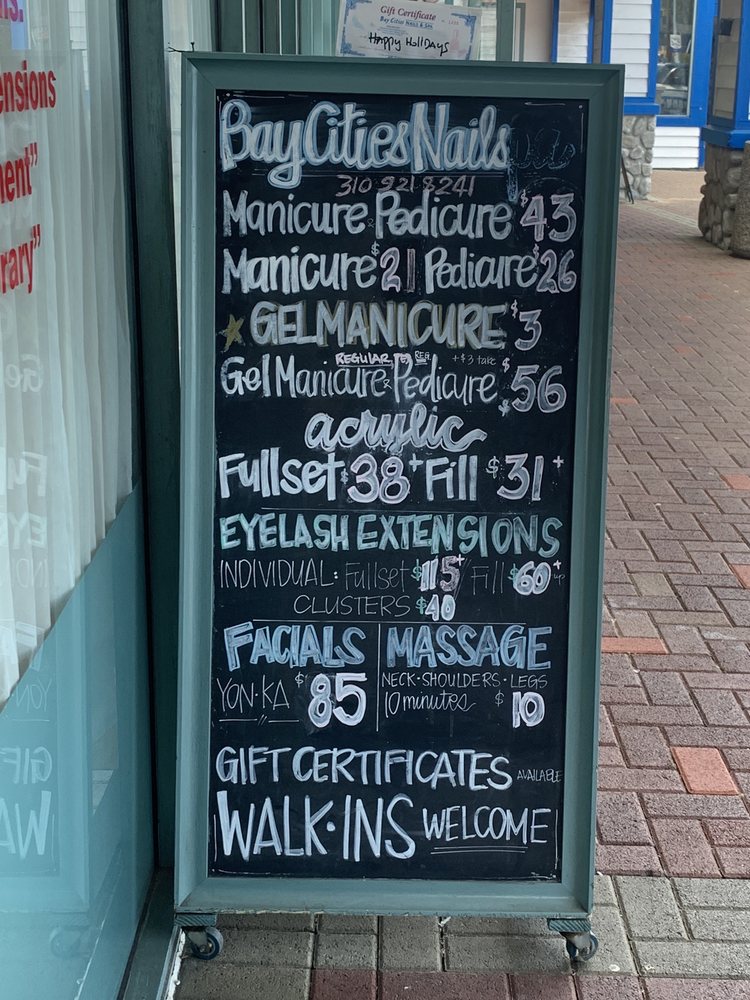 Gift Certificate
Bay Cities Nails & Spa
Happy Holidays
ns.
ensions
ment"
rary"
Bay Cities Nails
310 921 8241
Manicure & Pedicure $43
Manicure $21 Pedicure $26
GEL MANICURE $3
REGULAR REG. +$3 take
Gel Manicure & Pedicure $56
acrylic
Fullset $38+ Fill $31+
EYELASH EXTENSIONS
INDIVIDUAL: Fullset $115+ Fill $60+ up
CLUSTERS $40
FACIALS
YON·KA $85
MASSAGE
NECK·SHOULDERS·LEGS
10 minutes $10
GIFT CERTIFICATES AVAILABLE
WALK·INS WELCOME